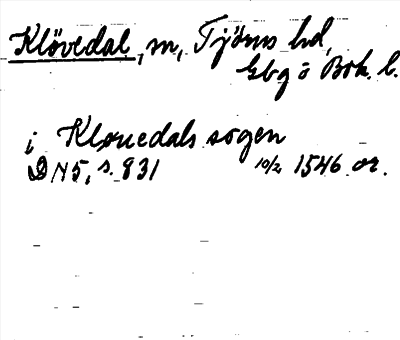 Klövedal, sn, Tjörns hd,
Gbg o Boh. l.
i Klouedals sogen
DN 5, s. 831 10/2 1546 or.